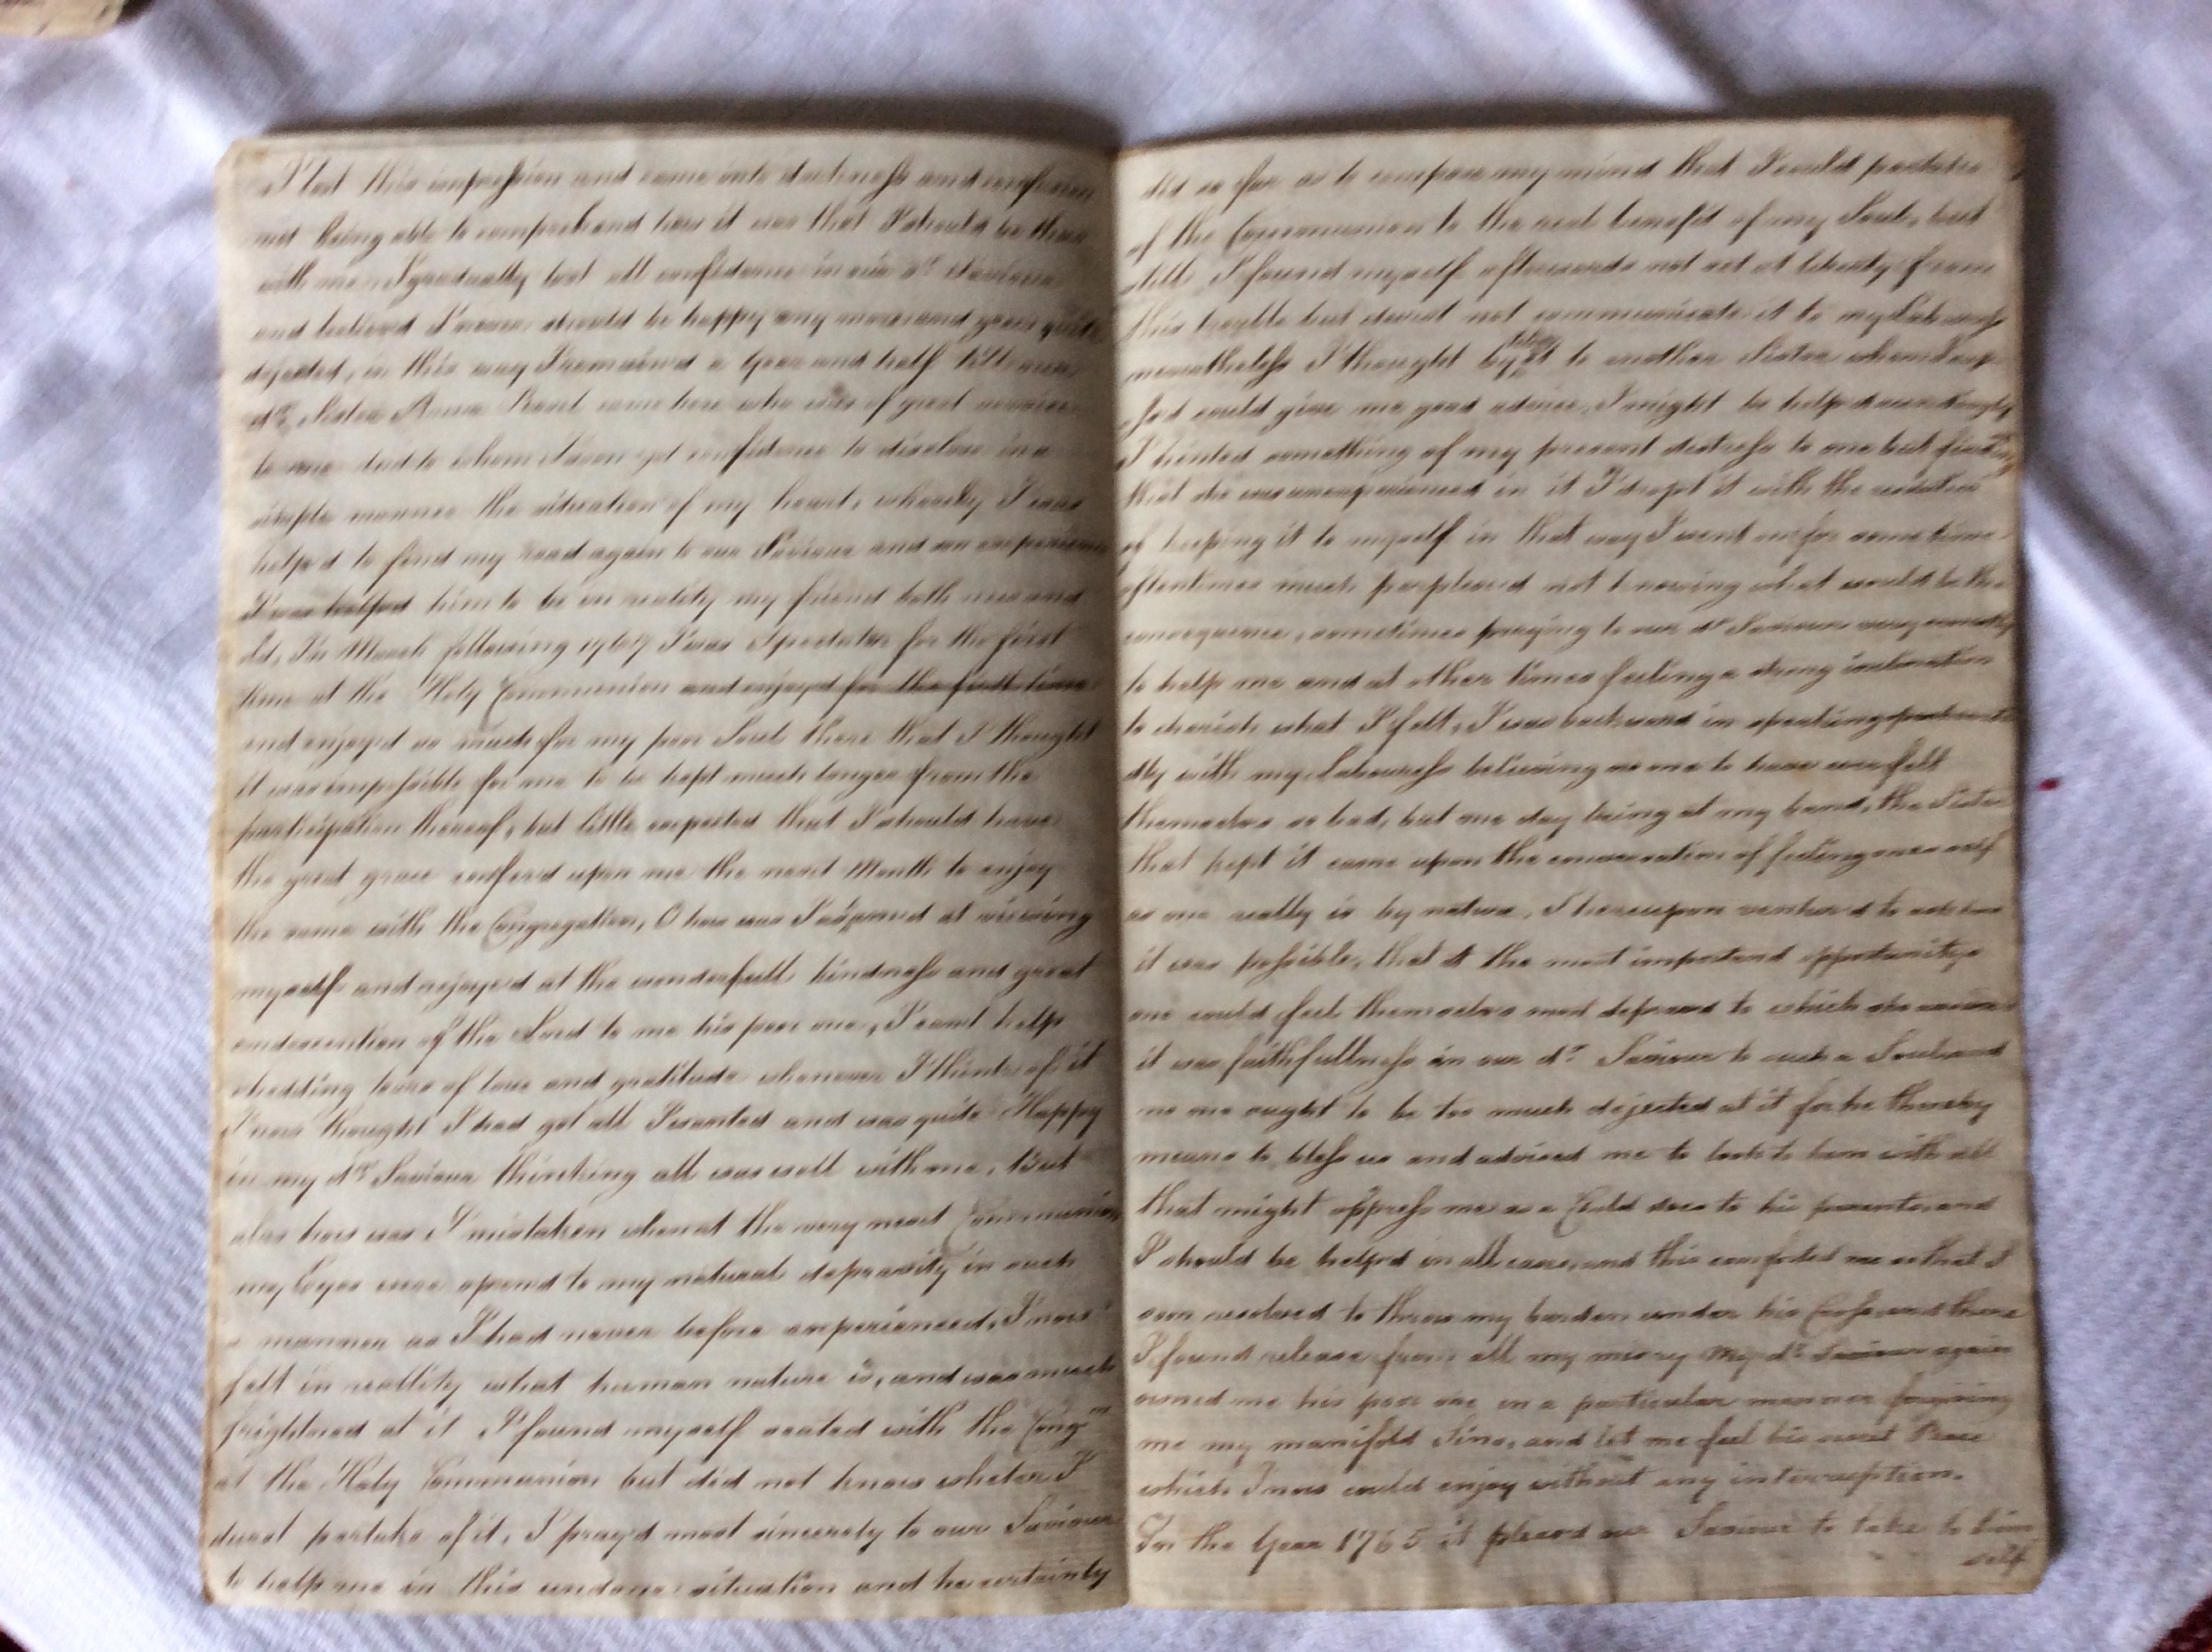 I lost this impression and came into darkness and confusion
not being able to comprehend how it was that I should be thus
with me, I gradually lost all confidence in our dr Saviour
and believd I never should be happy any more and grew quite
dejected, in this way I remain'd a Year and half till our
dr Sister Anna came here who was of great service
to me and to whom I soon got confidence to disclose in a
simple manner the situation of my heart, whereby I was
helpd to find my road again to our Saviour and
I was helped him to be in reality my friend both new and
old, In March following I was Spectator for the first
time at the Holy Communion and enjoyd for the first time
and enjoyd so much for my poor Soul there that I thought
it was impossible for me to be kept much longer from the
participation thereof, but little expected that I should have
the great grace conferd upon me the next Month to enjoy
the same with the Congregation, O how was I asham'd at viewing
myself and rejoyced at the wonderfull kindness and great
condescention of the Lord to me his poor one, I cant help
shedding tears of love and gratitude whenever I think of it
I now thought I had got all I wanted and was quite Happy
in my dr Saviour thinking all was well with me, But
alas how was I mistaken when at the very next Communion
my Eyes were opend to my natural depravity in such
a manner as I had never before experienced, I now
felt in reallity what human nature is, and was much
frightned at it I found myself seated with the Congn
at the Holy Communion but did not know wheter I
durst partake of it, I prayd most sincerely to our Saviour
to help me in this undone situation and he certainly
did so far as to compose my mind that I could partake
of the Communion to the real benefit of my Soul, but
still I found myself afterwards not set at liberty from
this trouble but durst not communicate it to my Labouress
nevertheless I thought by telling it to another Sister whom I
could give me good advice, I might be helpd accordingly
I hinted something of my present distress to one but finding
that she was unexperienced in it I dropt it with the
of keeping it to myself in that way I went on for some time
oftentimes much perplexed not knowing what would be the
consequence, sometimes praying to our dr Saviour very
to help me and at other times feeling a strong inclination
to cherish what I felt, I was backward in speaking
with my Labouress believing no one to have ever felt
themselves so bad, but one day being at my band, the Sister
that kept it came upon the conversation of feeling ones self
as one really is by nature, I hereupon venturd to ask how
it was possible, that at the most importand opportunitys
one could feel themselves most depraved to which she
it was faithfullness in our dr Saviour to such a Soul and
no one ought to be too much dejected at it for he thereby
means to bless us and advised me to look to him with all
that might oppress me as a Child does to his parents, and
I should be helpd in all cases, and this comforted me so that I
soon resolved to throw my burden under his Cross and there
I found release from all my misery My dr Saviour again
owned me his poor one in a particular manner forgiving
me my manifold Sins, and let me feel his sweet Peace
which I now could enjoy without any interruption.
In the Year 1765 it pleasd our Saviour to take to him
self